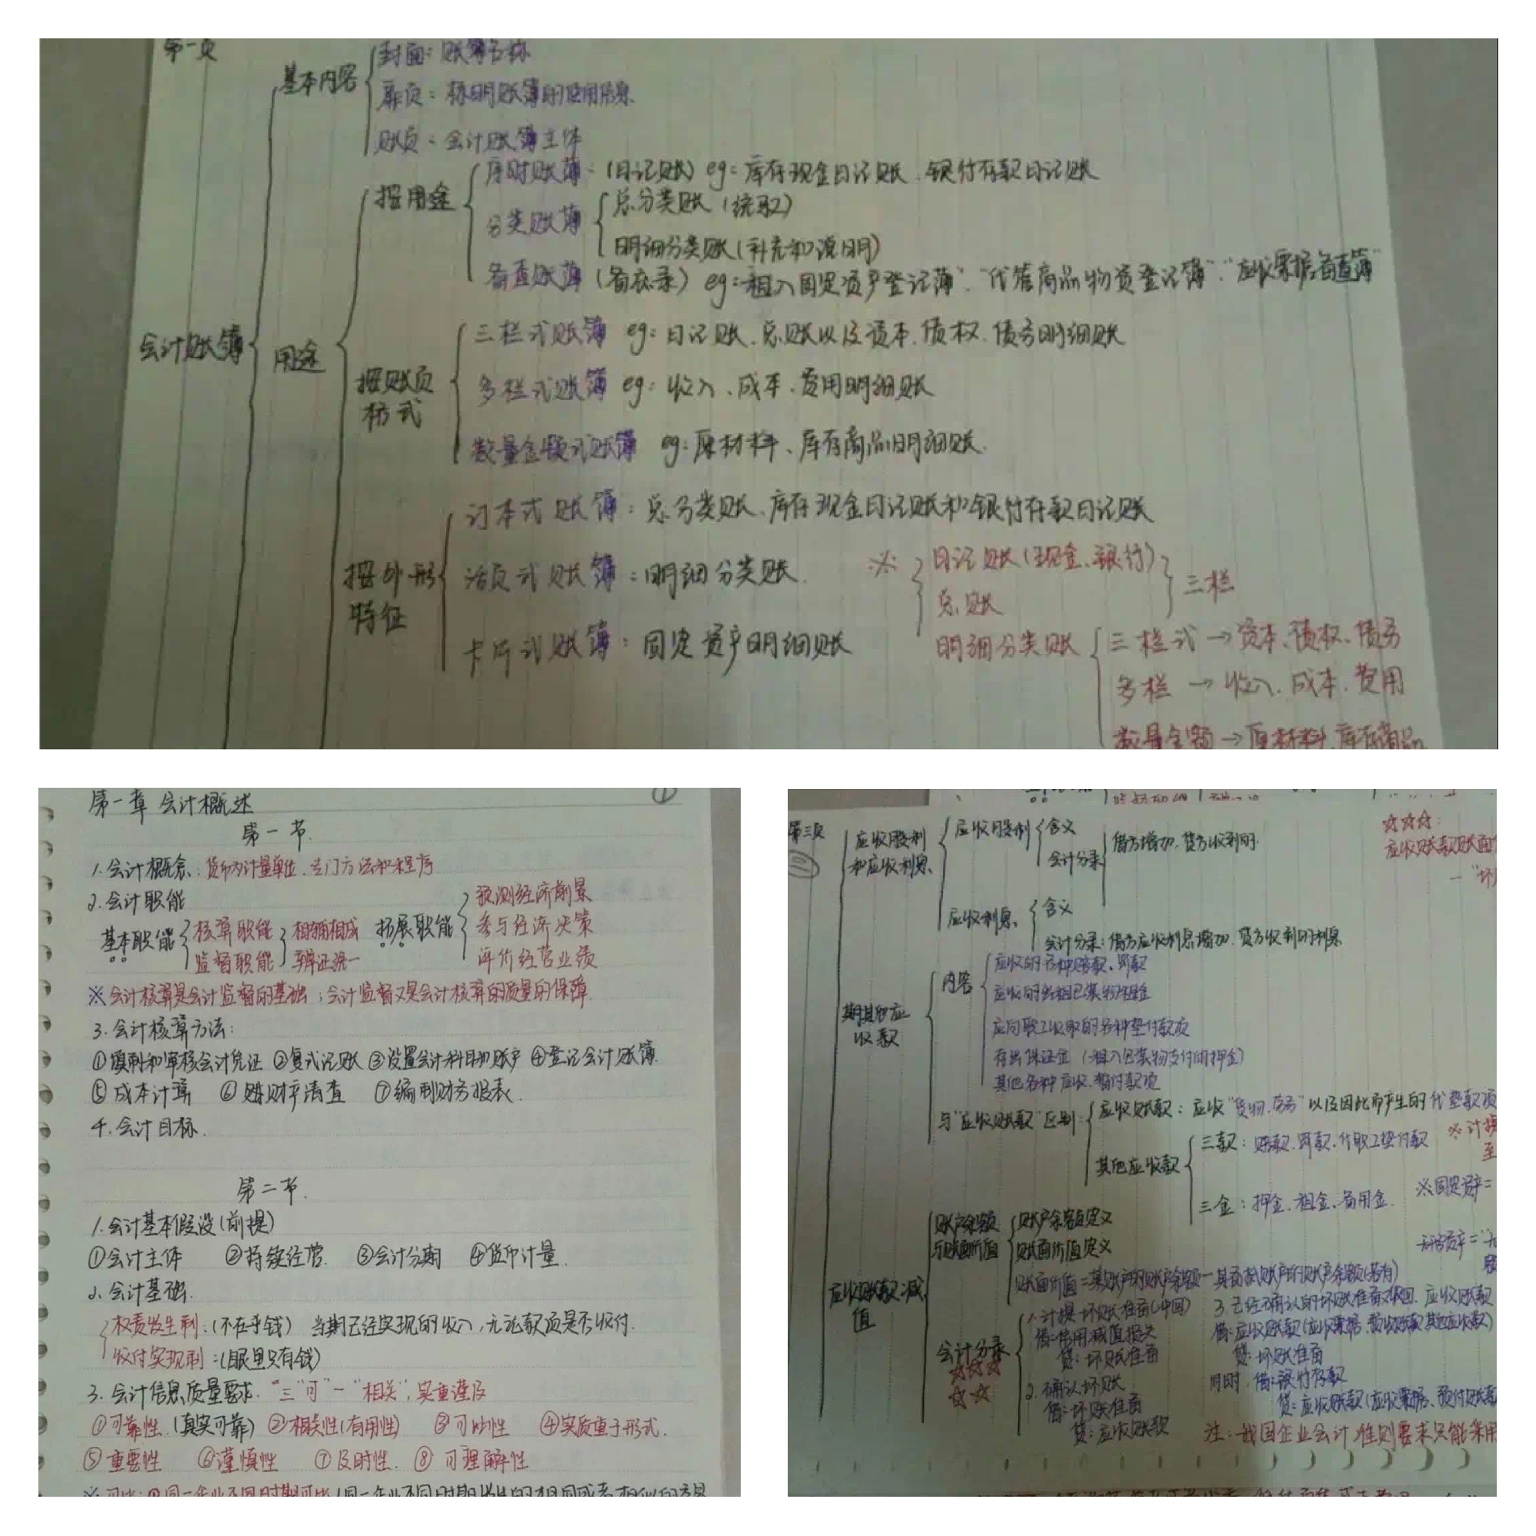 第一页
基本内容
封面：账簿名称
扉页：标明账簿的使用信息
账页：会计账簿主体
会计账簿
用途
按用途
序时账簿：(日记账) eg：库存现金日记账、银行存款日记账
分类账簿
总分类账 (统驭)
明细分类账 (补充和说明)
备查账簿 (备忘录) eg：租入固定资产登记簿"、"代管商品物资登记簿"、"应收票据备查簿"
按账页格式
三栏式账簿 eg：日记账、总账以及资本、债权、债务明细账
多栏式账簿 eg：收入、成本、费用明细账
数量金额式账簿 eg：原材料、库存商品明细账.
按外形特征
订本式账簿：总分类账、库存现金日记账和银行存款日记账
活页式账簿：明细分类账.
卡片式账簿：固定资产明细账
※ 日记账 (现金、银行)
总账
三栏
明细分类账
三栏式 → 资本、债权、债务
多栏 → 收入、成本、费用
数量金额 → 原材料、库存商品
第一章 会计概述 ①
第一节.
1.会计概念：货币为计量单位、专门方法和程序
2.会计职能
基本职能
核算职能
监督职能
相辅相成
辩证统一
拓展职能
预测经济前景
参与经济决策
评价经营业绩
※会计核算是会计监督的基础；会计监督又是会计核算的质量的保障.
3.会计核算方法：
①填制和审核会计凭证 ②复式记账 ③设置会计科目和账户 ④登记会计账簿
⑤成本计算 ⑥财产清查 ⑦编制财务报表.
4.会计目标.
第二节.
1.会计基本假设(前提)
①会计主体 ②持续经营. ③会计分期 ④货币计量.
2.会计基础.
权责发生制：(不在乎钱) 当期已经实现的收入,无论款项是否收付.
收付实现制：(眼里只有钱)
3.会计信息质量要求."三"可"一"相关",实重谨及
①可靠性.(真实可靠) ②相关性(有用性) ③可比性 ④实质重于形式.
⑤重要性 ⑥谨慎性 ⑦及时性. ⑧可理解性
第三页
应收股利和应收利息.
应收股利
含义
会计分录
借方增加,贷方收利时.
应收利息.
含义
会计分录：借方应收利息增加,贷方收利时利息
☆☆☆：
应收账款账面
其他应收款
内容
应收的各种赔款、罚款
应收的出租包装物租金
应向职工收取的各种垫付款项
存出保证金 (租入包装物支付的押金)
其他各种应收、暂付款项
与"应收账款"区别
应收账款：应收"货物、劳务"以及因此而产生的代垫款项
其他应收款
三款：赔款、罚款、代职工垫付款
三金：押金、租金、备用金.
※计提
至
※固定资产=
无形资产="
应收账款减值
账户余额与账面价值
账户余额定义
账面价值定义
账面价值=某账户的账户余额-其备抵账户的账户余额(若有)
会计分录
☆☆☆
☆☆
1.计提坏账准备
借：信用减值损失
贷：坏账准备
2.确认坏账
借：坏账准备
贷：应收账款
3.已经确认的坏账准备又收回.应收账款
借：应收账款(应收票据、预付账款、其他应收款)
贷：坏账准备
同时.借：银行存款
贷：应收账款(应收票据、预付账款
注：我国企业会计准则要求只能采用